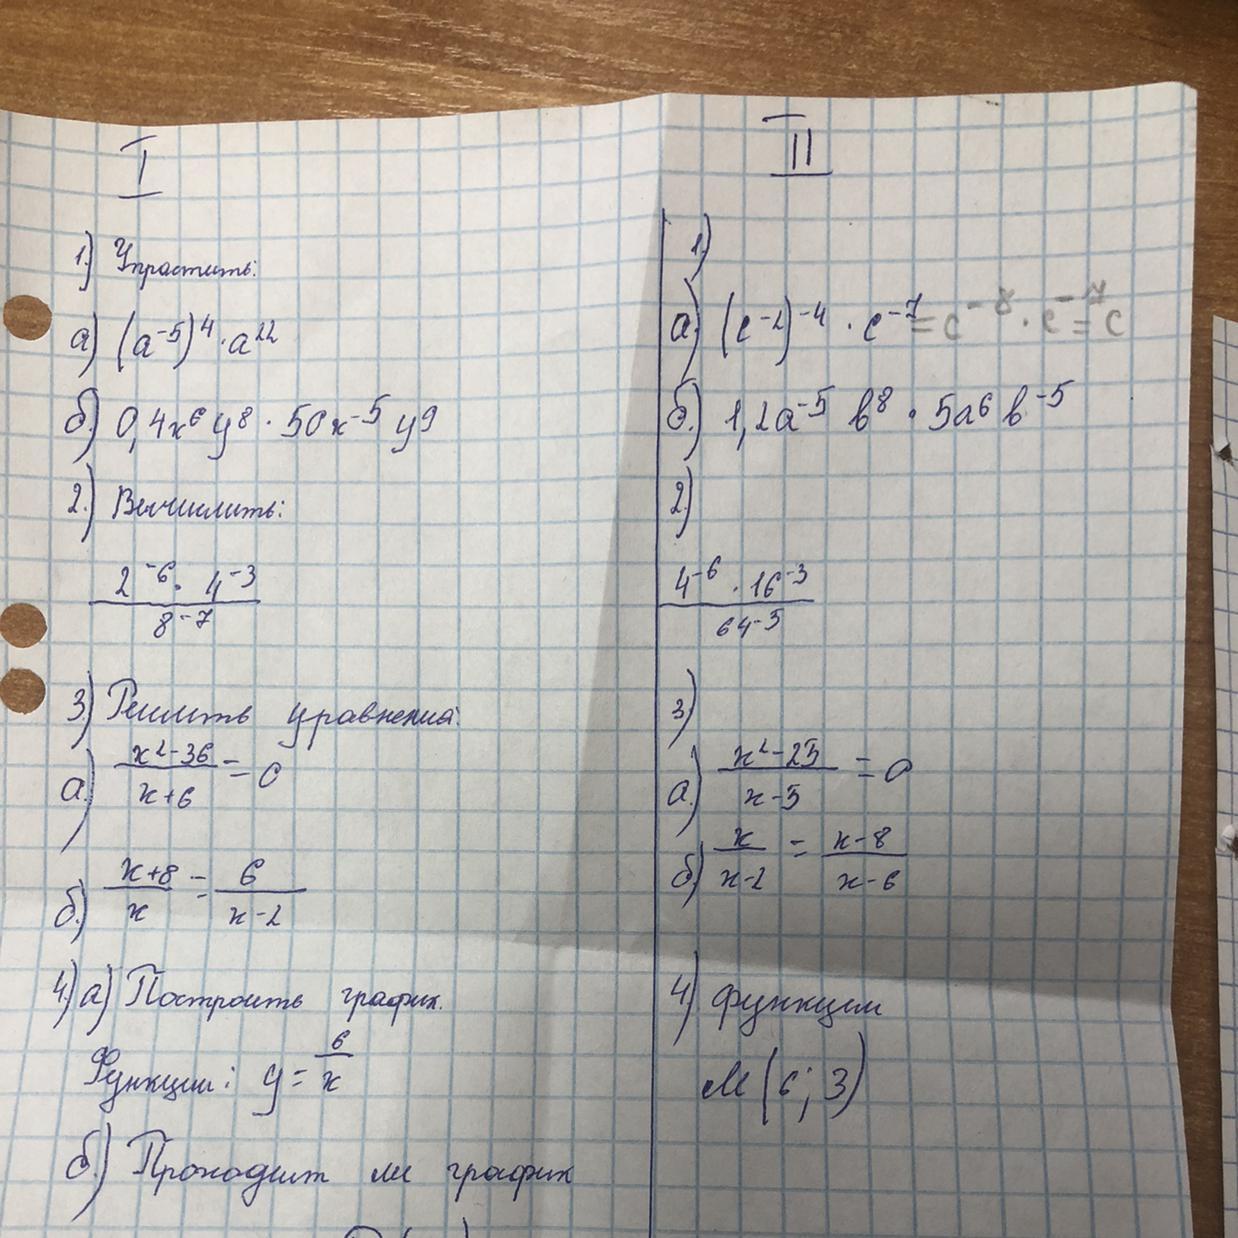 I
1) Упростить:
а) (a⁻⁵)⁴ · a²²
б) 0,4x⁶ y⁸ · 50x⁻⁵ y⁹
2) Вычислить:
2⁻⁶ · 4⁻³
8⁻⁷
3) Решить уравнения:
а) x²-36 / x+6 = 0
б) x+8 / x = 6 / x-2
4) а) Построить график
Функции: y = 6/x
б) Проходит ли график
II
1)
а) (c⁻²)⁻⁴ · c⁻⁷ = c⁻⁸ · c⁻⁷ = c
б) 1,2a⁻⁵ b⁸ · 5a⁶ b⁻⁵
2)
4⁻⁶ · 16⁻³
64⁻⁵
3)
а) x²-25 / x-5 = 0
б) x / x-2 = x-8 / x-6
4) функции
M (6; 3)